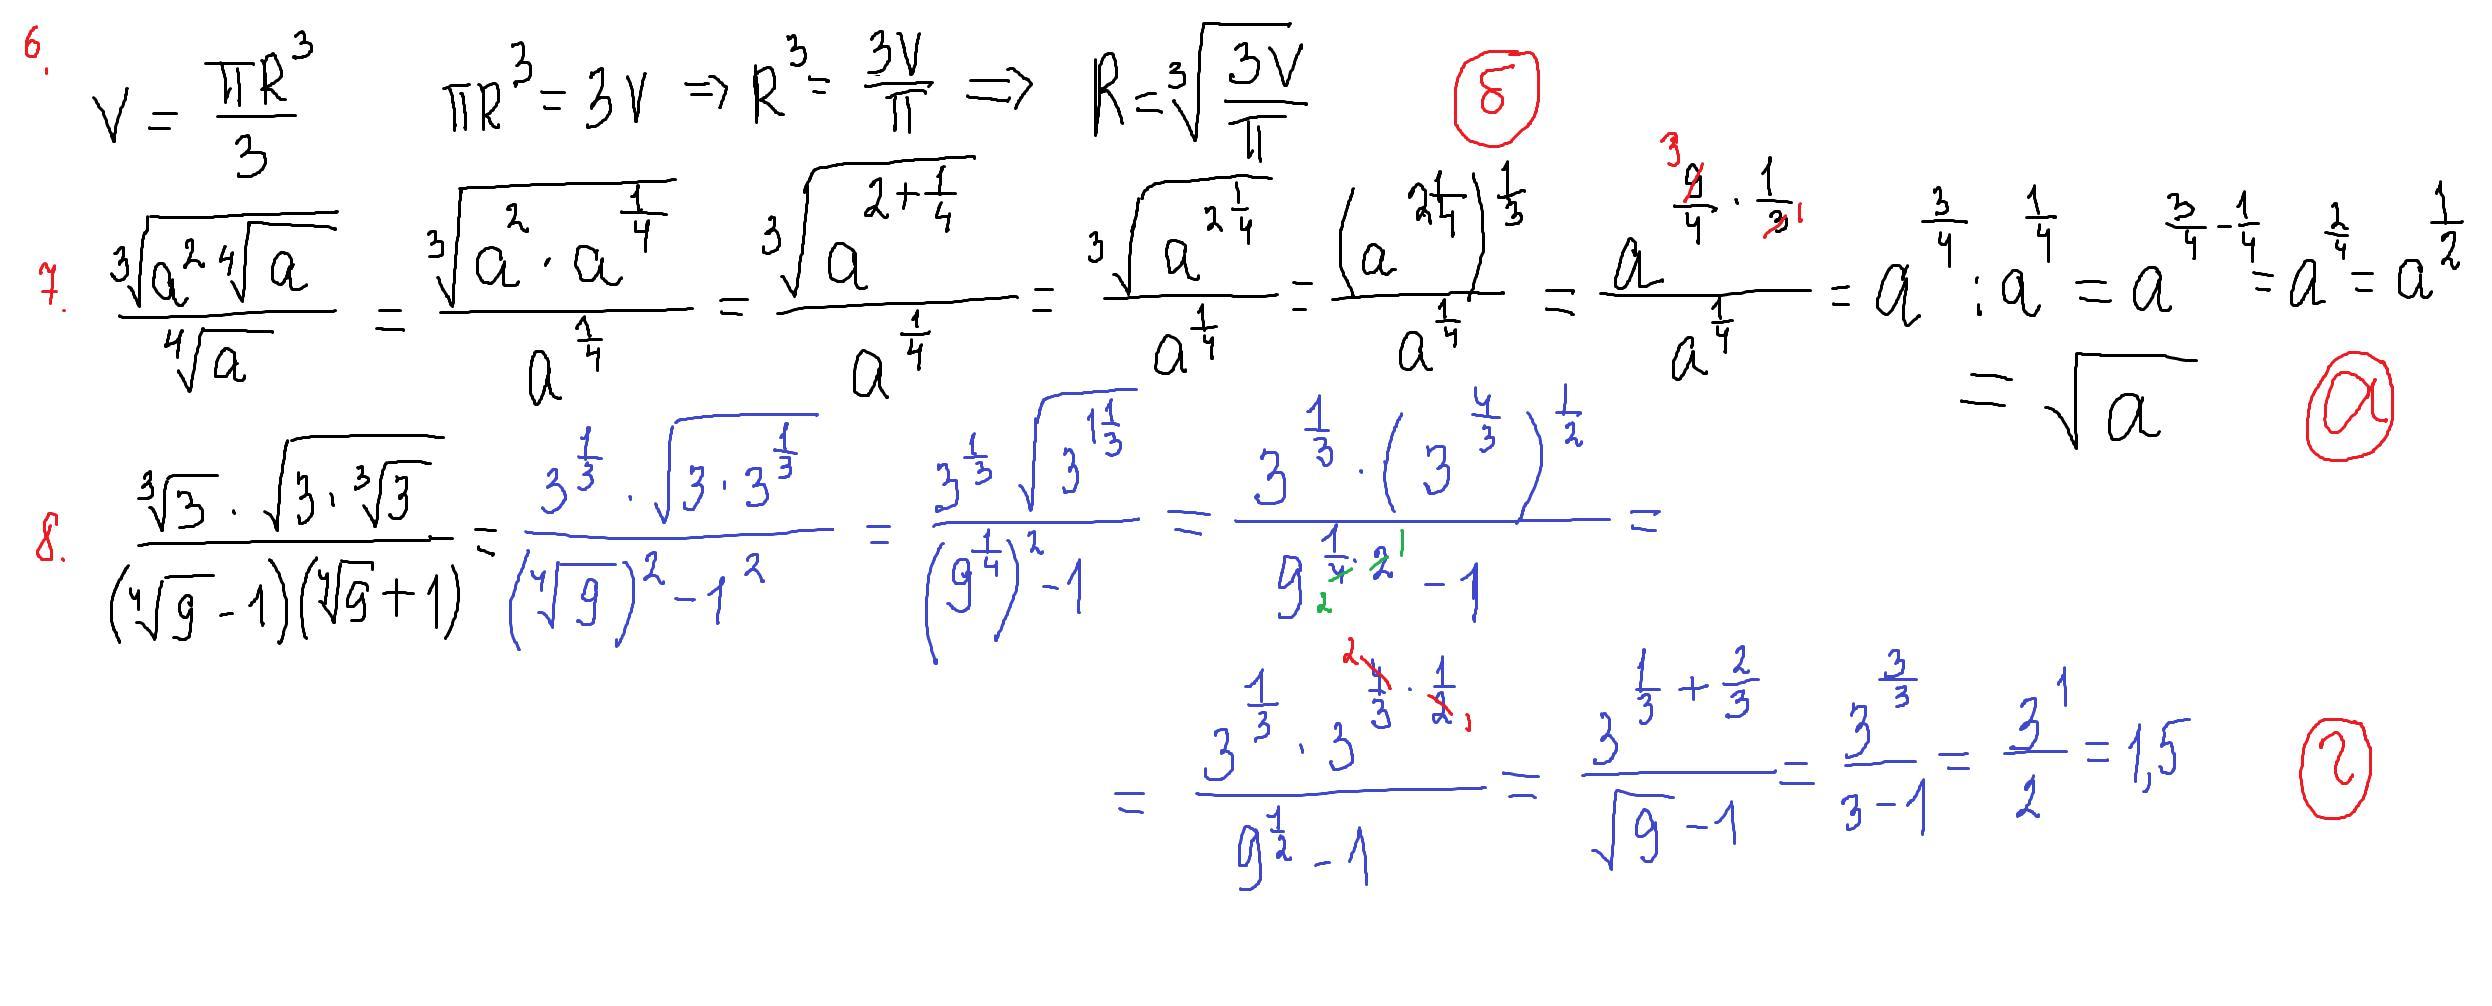 6. V = πR³/3 πR³ = 3V ⇒ R³ = 3V/π ⇒ R = ∛(3V/π) б
7. ∛(a² ∜a)/∜a = ∛(a² · a^(1/4))/a^(1/4) = ∛(a^(2+1/4))/a^(1/4) = ∛(a^(2 1/4))/a^(1/4) = (a^(2 1/4))^(1/3)/a^(1/4) = a^(9/4 · 1/3)/a^(1/4) = a^(3/4) : a^(1/4) = a^(3/4 - 1/4) = a^(2/4) = a^(1/2)
= √a а
8. ∛3 · √(3 · ∛3)/((∜9 - 1)(∜9 + 1)) = 3^(1/3) · √(3 · 3^(1/3))/((∜9)² - 1²) = 3^(1/3) √(3^(1 1/3))/((9^(1/4))² - 1) = 3^(1/3) · (3^(4/3))^(1/2)/(9^(1/4 · 2) - 1) =
= 3^(1/3) · 3^(4/3 · 1/2)/(9^(1/2) - 1) = 3^(1/3 + 2/3)/(√9 - 1) = 3^(3/3)/(3 - 1) = 3¹/2 = 1,5 г